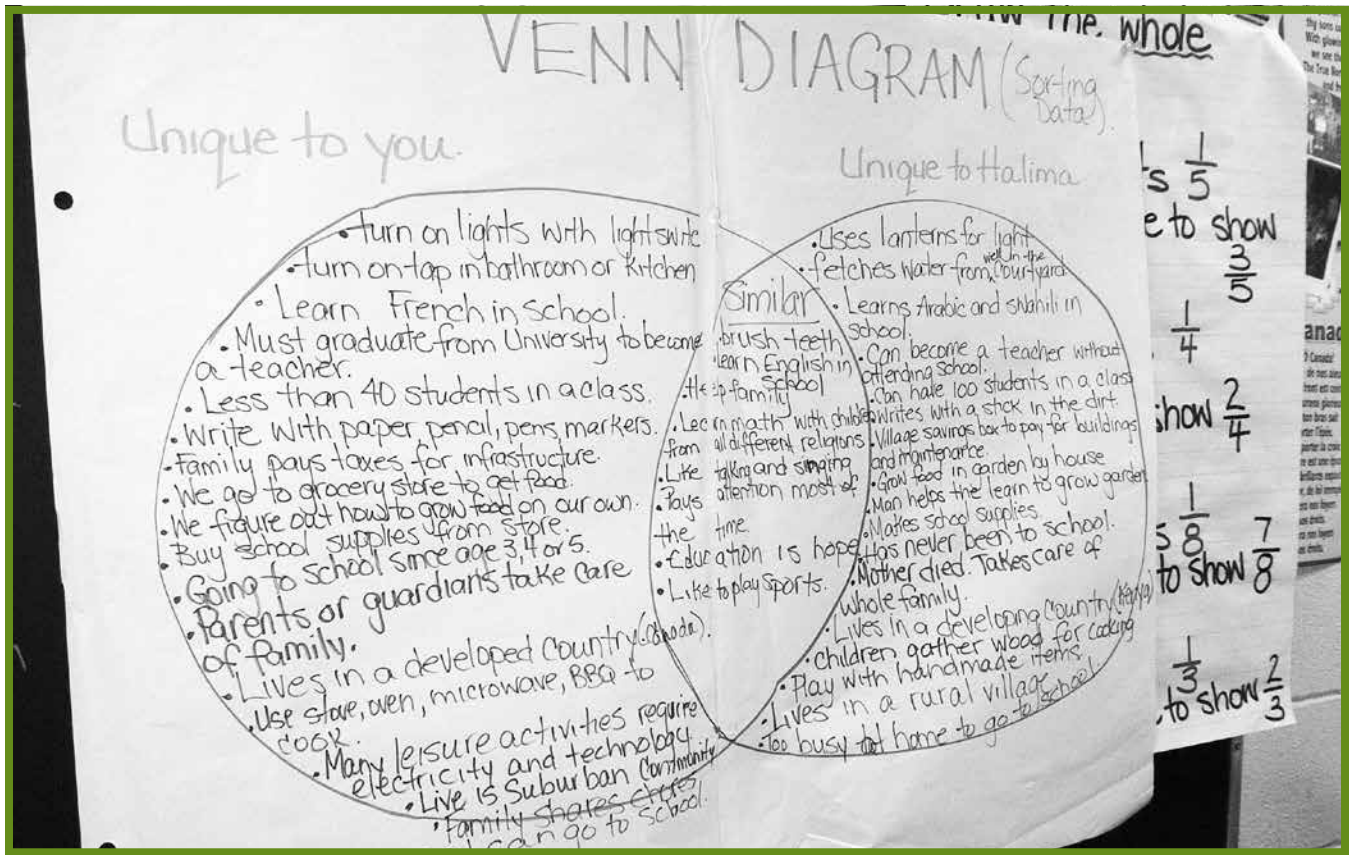 VENN DIAGRAM (Sorting
Data).
Unique to you.
• turn on lights with lightswitc
• turn on tap in bathroom or kitchen
• Learn French in school.
• Must graduate from University to become
a teacher.
• Less than 40 students in a class.
• Write with paper, pencil, pens, markers.
• Family pays taxes for infrastructure.
• We go to grocery store to get food.
• We figure out how to grow food on our own.
• Buy school supplies from store.
• Going to school since age 3, 4 or 5.
• Parents or guardians take care
of family.
• Lives in a developed country (Canada).
• Use stove, oven, microwave, BBQ to
cook.
• Many leisure activities require
electricity and technology
• Live is Suburban Community
• Family shares chores
can go to school.
Similar
brush teeth
• Learn English in
school
• Help family
• Learn math with childre
from all different religions
• Like talking and singing
• Pays attention most of
the time
• Education is hope
• Like to play sports.
Unique to Halima
• Uses lanterns for light
• fetches water from well in the courtyard
• Learns Arabic and swahili in
school.
• Can become a teacher without
attending school.
• Can have 100 students in a class
• Writes with a stick in the dirt
• Village savings box to pay for buildings
and maintenance.
• Grow food in garden by house
• Man helps the learn to grow garden
• Makes school supplies.
• Has never been to school.
• Mother died. Takes care of
whole family.
• Lives in a developing country (Kenya)
• children gather wood for cooking
• Play with handmade items
• Lives in a rural village
• Too busy at home to go to school
the whole
1/5
e to show
3/5
1/4
show 2/4
1/8
to show 7/8
1/3
to show 2/3